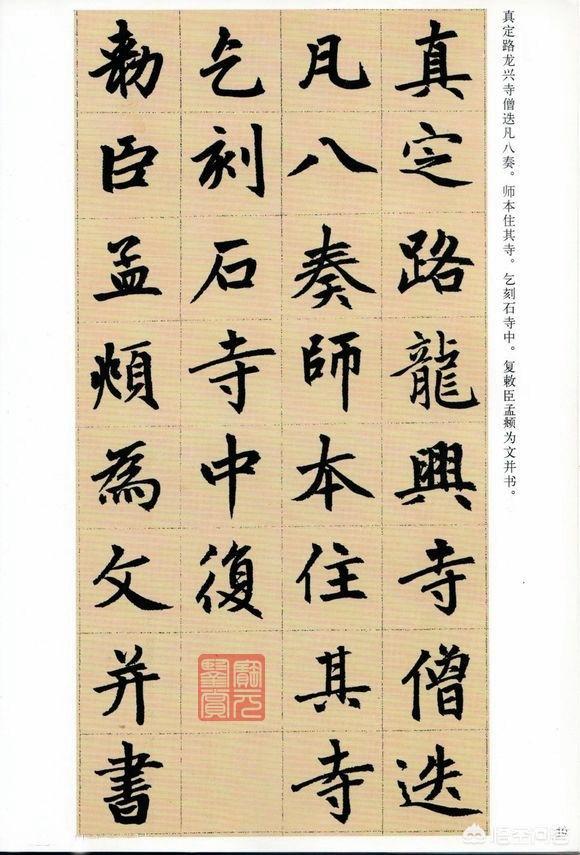 真定路龙兴寺僧迭凡八奏。师本住其寺。乞刻石寺中。复敕臣孟頫为文并书。
真定路龍興寺僧迭
凡八奏師本住其寺
乞刻石寺中復
勑臣孟頫為文并書
19
悟空问答